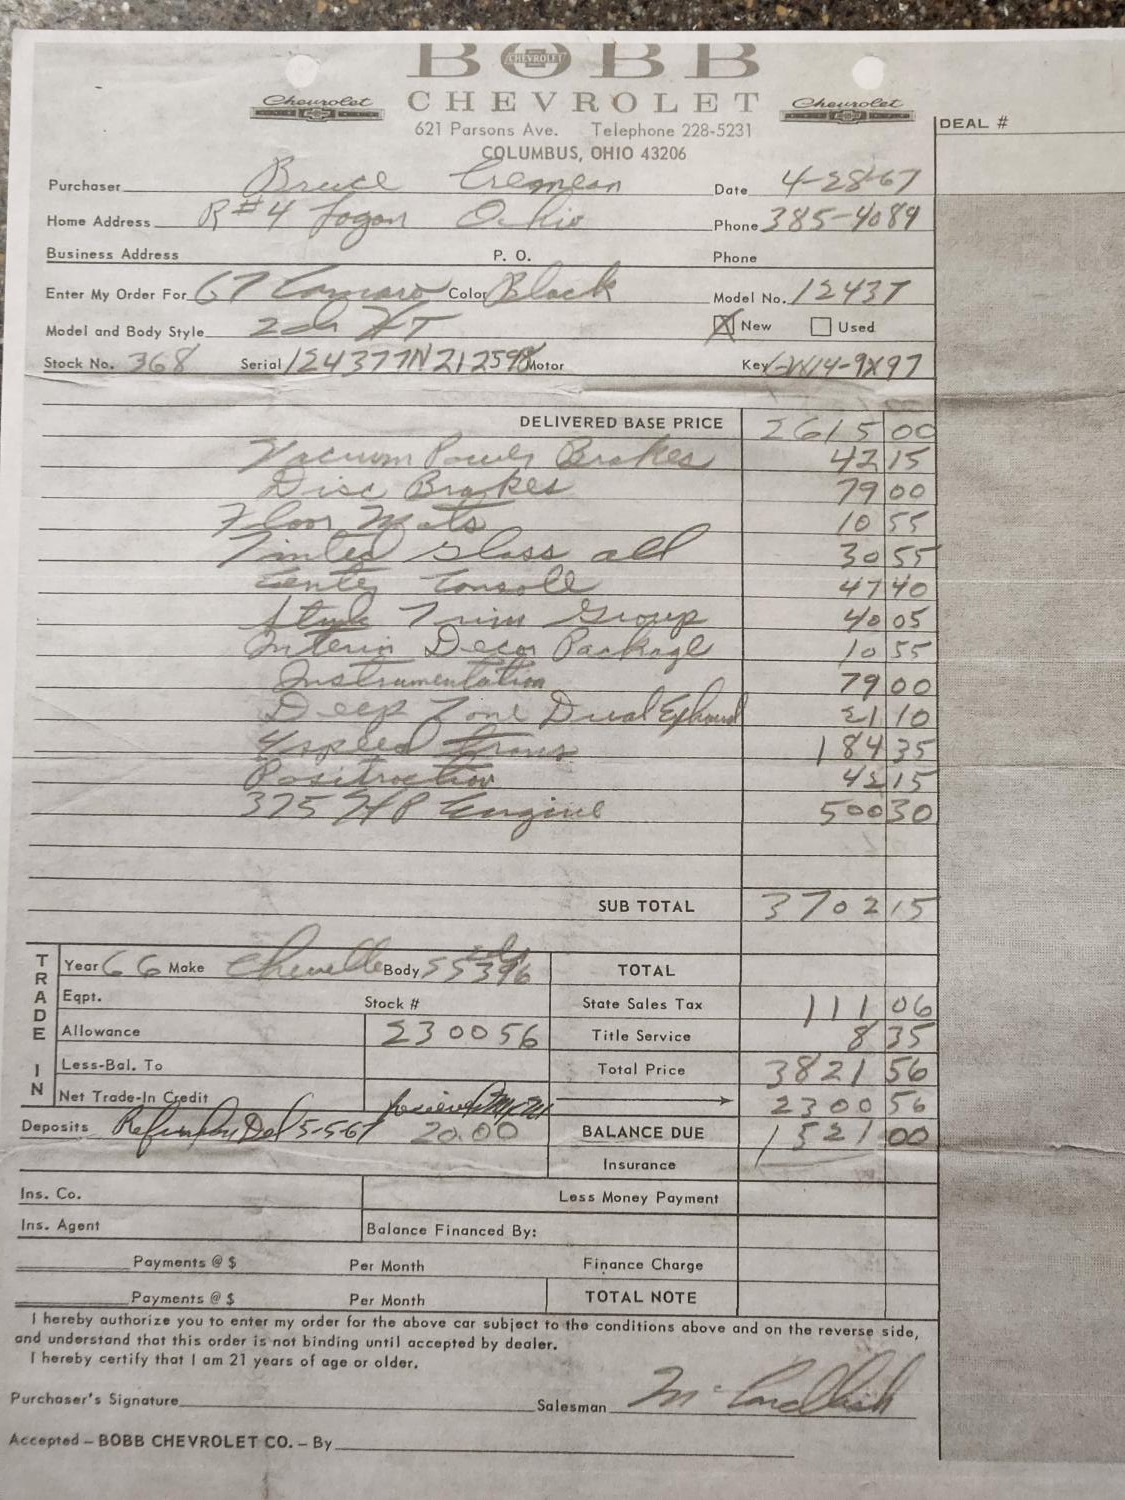 BOBB
CHEVROLET
Chevrolet CHEVROLET Chevrolet
621 Parsons Ave. Telephone 228-5231
COLUMBUS, OHIO 43206
DEAL #
Purchaser Bruce Cremean Date 4-28-67
Home Address R#4 Logan Ohio Phone 385-4089
Business Address P. O. Phone
Enter My Order For 67 Camaro Color Black Model No. 12437
Model and Body Style 2dr HT X New Used
Stock No. 368 Serial 124377N212598 Motor Key
DELIVERED BASE PRICE 2615 00
Vacuum Power Brakes 42 15
Disc Brakes 79 00
Floor Mats 10 55
Tinted Glass all 30 55
Center Console 47 40
Style Trim Group 40 05
Interior Decor Package 10 55
Instrumentation 79 00
Deep Tone Dual Exhaust 21 10
4 speed trans 184 35
Positraction 42 15
375 HP Engine 500 30
SUB TOTAL 3702 15
TRADE IN
Year 66 Make Chevelle Body SS 396 TOTAL
Eqpt. Stock # State Sales Tax 111 06
Allowance 2300 56 Title Service 8 35
Less-Bal. To Total Price 3821 56
Net Trade-In Credit 2300 56
Deposits 5-5-67 20.00 BALANCE DUE 1521 00
Insurance
Ins. Co. Less Money Payment
Ins. Agent Balance Financed By:
Payments @ $ Per Month Finance Charge
Payments @ $ Per Month TOTAL NOTE
I hereby authorize you to enter my order for the above car subject to the conditions above and on the reverse side,
and understand that this order is not binding until accepted by dealer.
I hereby certify that I am 21 years of age or older.
Purchaser's Signature Salesman McCandlish
Accepted - BOBB CHEVROLET CO. - By